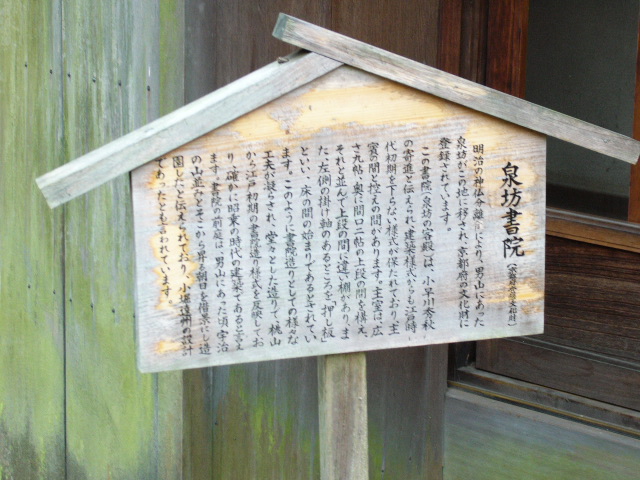 泉坊書院
明治の神仏分離により、男山にあった
泉坊がこの地に移され、京都府の文化財に
登録されています。
この書院(泉坊の客殿)は、小早川秀秋
の寄進と伝えられ、建築様式からも江戸時
代初期を下らない様式が保たれており、主
室の間と控えの間があります。主室は、広
さ九帖、奥に間口二帖の上段の間を構え、
それと並んで上段の間に違い棚があり、ま
た、左側の掛け軸のあるところを「押し板」
といい、床の間の始まりであるとされてい
ます。このように書院造りとしての様々な
工夫が凝らされ、堂々とした造りで桃山
から江戸初期の書院造り様式を反映してお
り、確かに昭乗の時代の建築であると言え
ます。書院の前庭は、男山にあった頃、宇治
の山並みとそこから昇る朝日を借景にし造
園したと伝えられており、小堀遠州の設計
であったとも言われています。